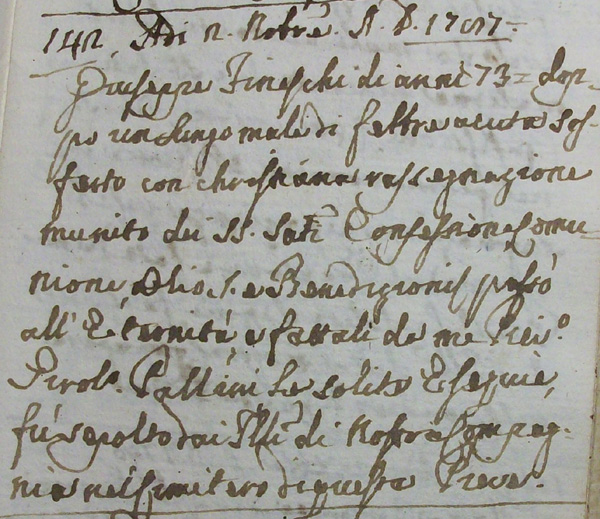 142. Adi 2. Nobre. A. D. 1787.
Giuseppe Fineschi di anni 73 = dop=
po un lungo male di febbre acuta sof=
ferto con christiana rassegnazione
munito dei SS. Sati Confessione Comu=
nione, Olio S. e Benedizioni passò
all' Eternità, e fattali da me
Girolo. Pallini le solite Esequie,
fù sepolto dai Flli di Nostra Compag=
nia nel Cimitero di questa Pieve.